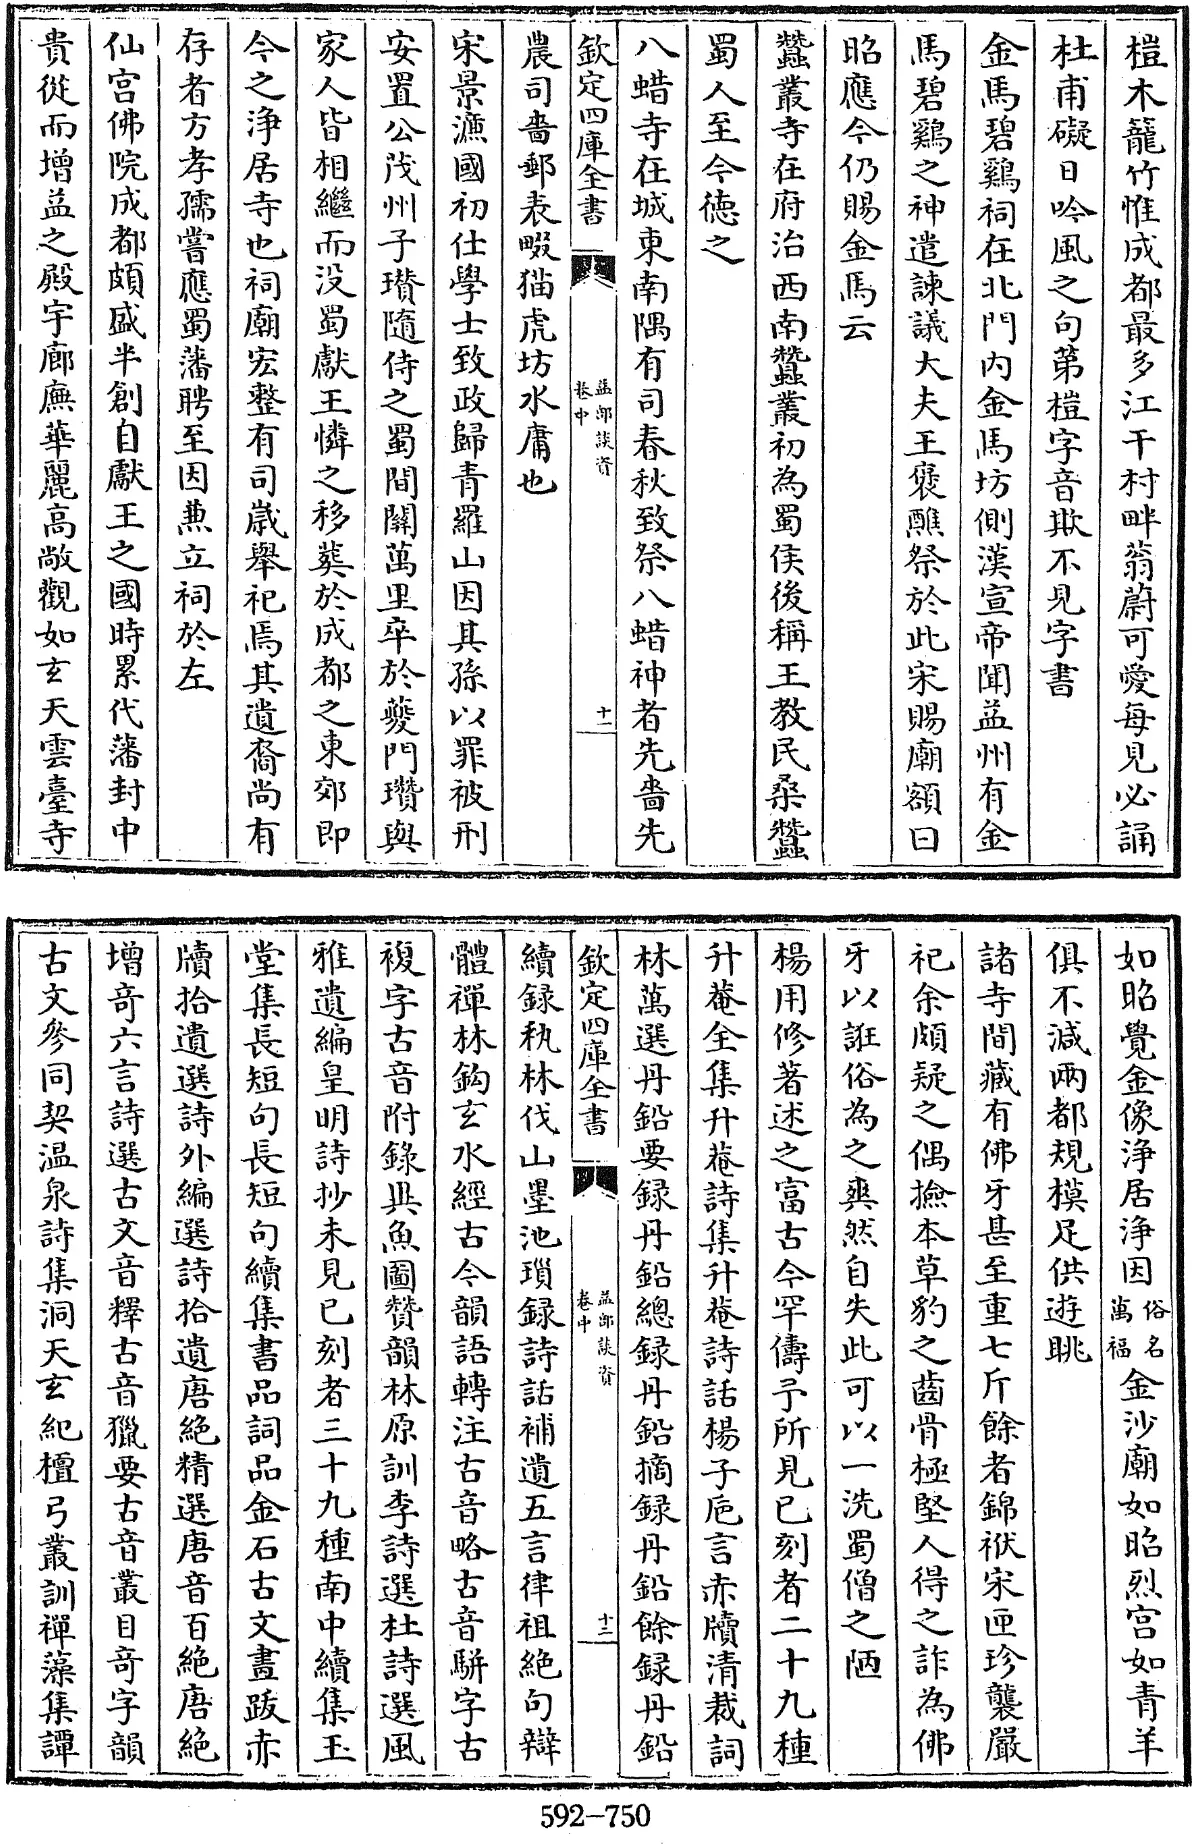 榿木籠竹惟成都最多江干村畔蓊蔚可愛每見必誦
杜甫礙日吟風之句第榿字音欺不見字書
金馬碧鷄祠在北門内金馬坊側漢宣帝聞益州有金
馬碧鷄之神遣諫議大夫王褒醮祭於此宋賜廟額曰
昭應今仍賜金馬云
蠶叢寺在府治西南蠶叢初為蜀侯後稱王教民桑蠶
蜀人至今德之
八蜡寺在城東南隅有司春秋致祭八蜡神者先嗇先
欽定四庫全書
益部談資
卷中
十一
農司嗇郵表畷猫虎坊水庸也
宋景濂國初仕學士致政歸青羅山因其孫以罪被刑
安置公茂州子瓚隨侍之蜀間關萬里卒於夔門瓚與
家人皆相繼而没蜀獻王憐之移葬於成都之東郊即
今之淨居寺也祠廟宏整有司嵗舉祀焉其遺裔尚有
存者方孝孺嘗應蜀藩聘至因兼立祠於左
仙宫佛院成都頗盛半創自獻王之國時累代藩封中
貴從而增益之殿宇廊廡華麗高敞觀如玄天雲臺寺
如昭覺金像淨居淨因俗名萬福金沙廟如昭烈宫如青羊
俱不減兩都規模足供遊眺
諸寺間藏有佛牙甚至重七斤餘者錦袱宋匣珍襲嚴
祀余頗疑之偶撿本草豹之齒骨極堅人得之詐為佛
牙以誑俗為之爽然自失此可以一洗蜀僧之陋
楊用修著述之富古今罕儔予所見已刻者二十九種
升菴全集升菴詩集升菴詩話楊子巵言赤牘清裁詞
林萬選丹鉛要録丹鉛總録丹鉛摘録丹鉛餘録丹鉛
欽定四庫全書
益部談資
卷中
十二
續録秇林伐山墨池瑣録詩話補遺五言律祖絶句辯
體禪林鈎玄水經古今韻語轉注古音略古音駢字古
複字古音附錄異魚圖贊韻林原訓李詩選杜詩選風
雅遺編皇明詩抄未見已刻者三十九種南中續集玉
堂集長短句長短句續集書品詞品金石古文畫跋赤
牘拾遺選詩外編選詩拾遺唐絶精選唐音百絶唐絶
增竒六言詩選古文音釋古音獵要古音叢目竒字韻
古文參同契温泉詩集洞天玄紀檀弓叢訓禪藻集譚
592-750